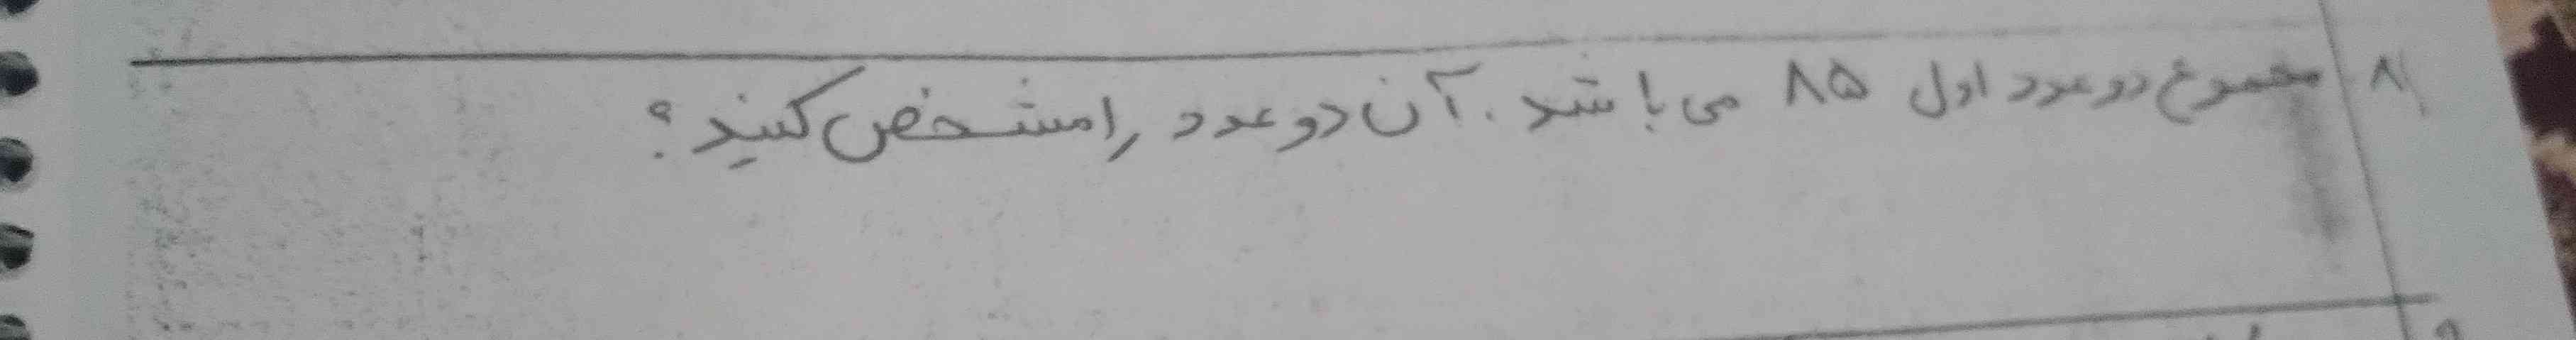 ۸ مجموع دو عدد اول ۸۵ می باشد. آن دو عدد را مشخص کنید؟